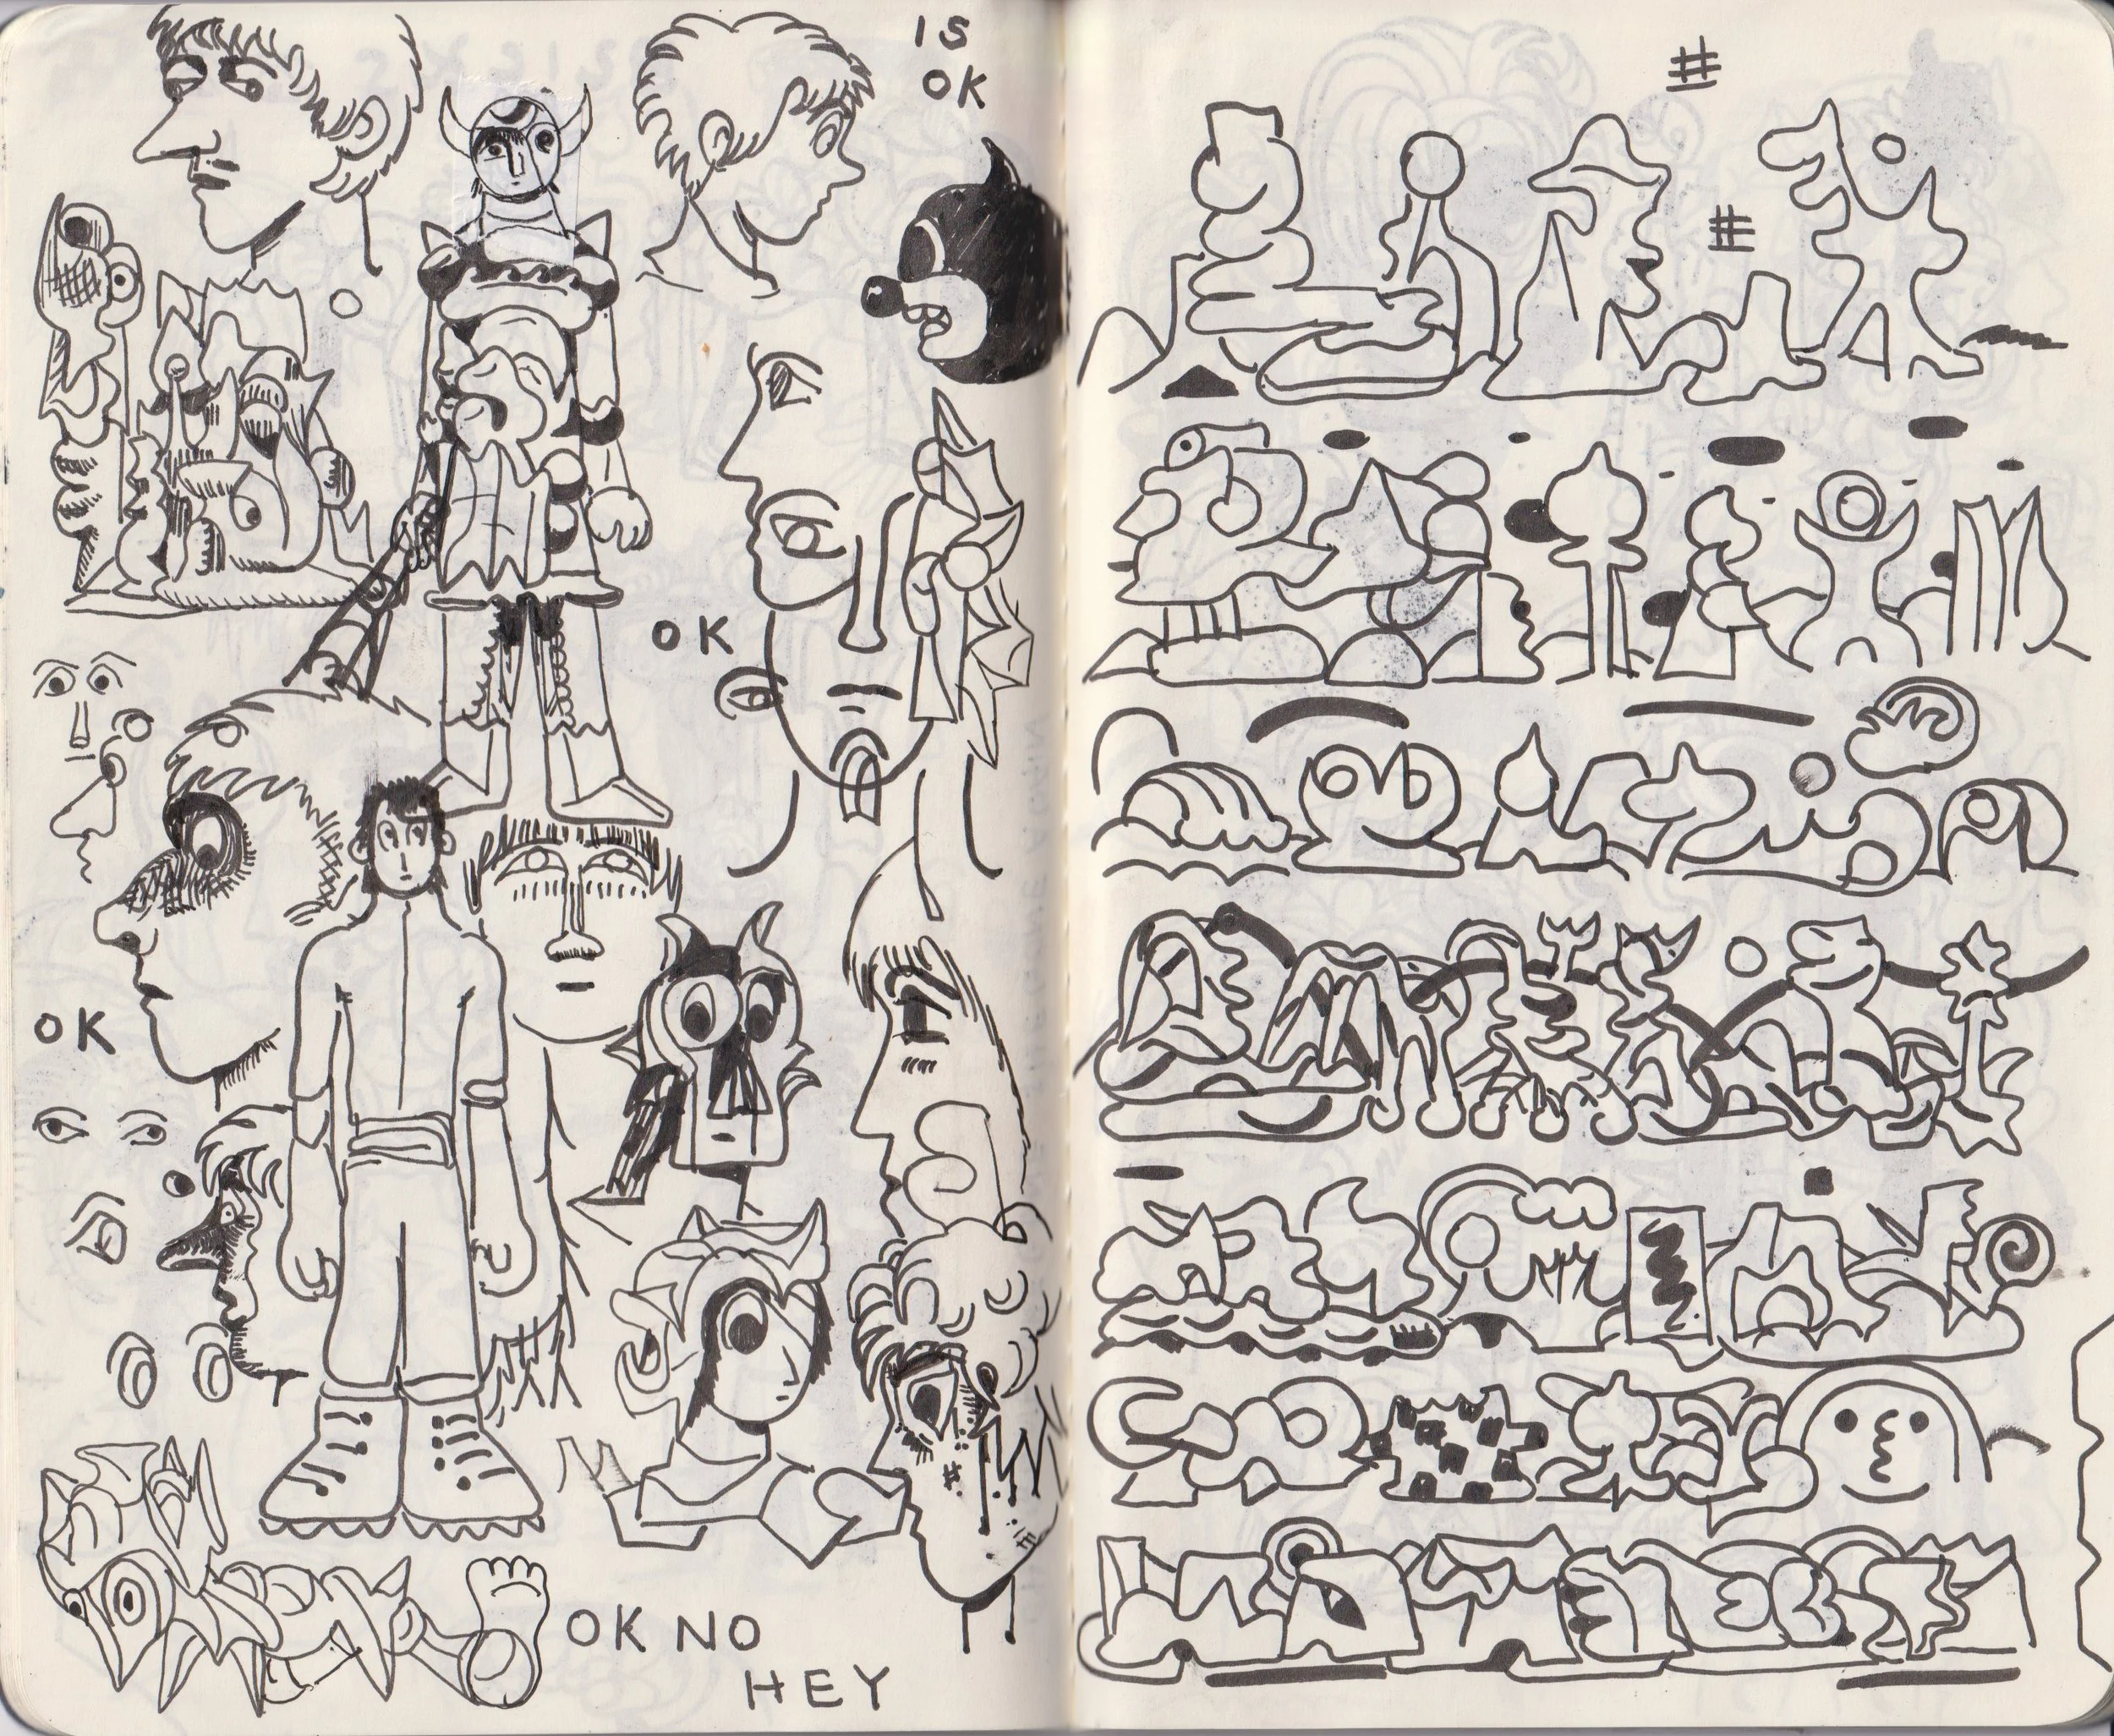 IS
OK
OK
OK
OK NO
HEY
#
#